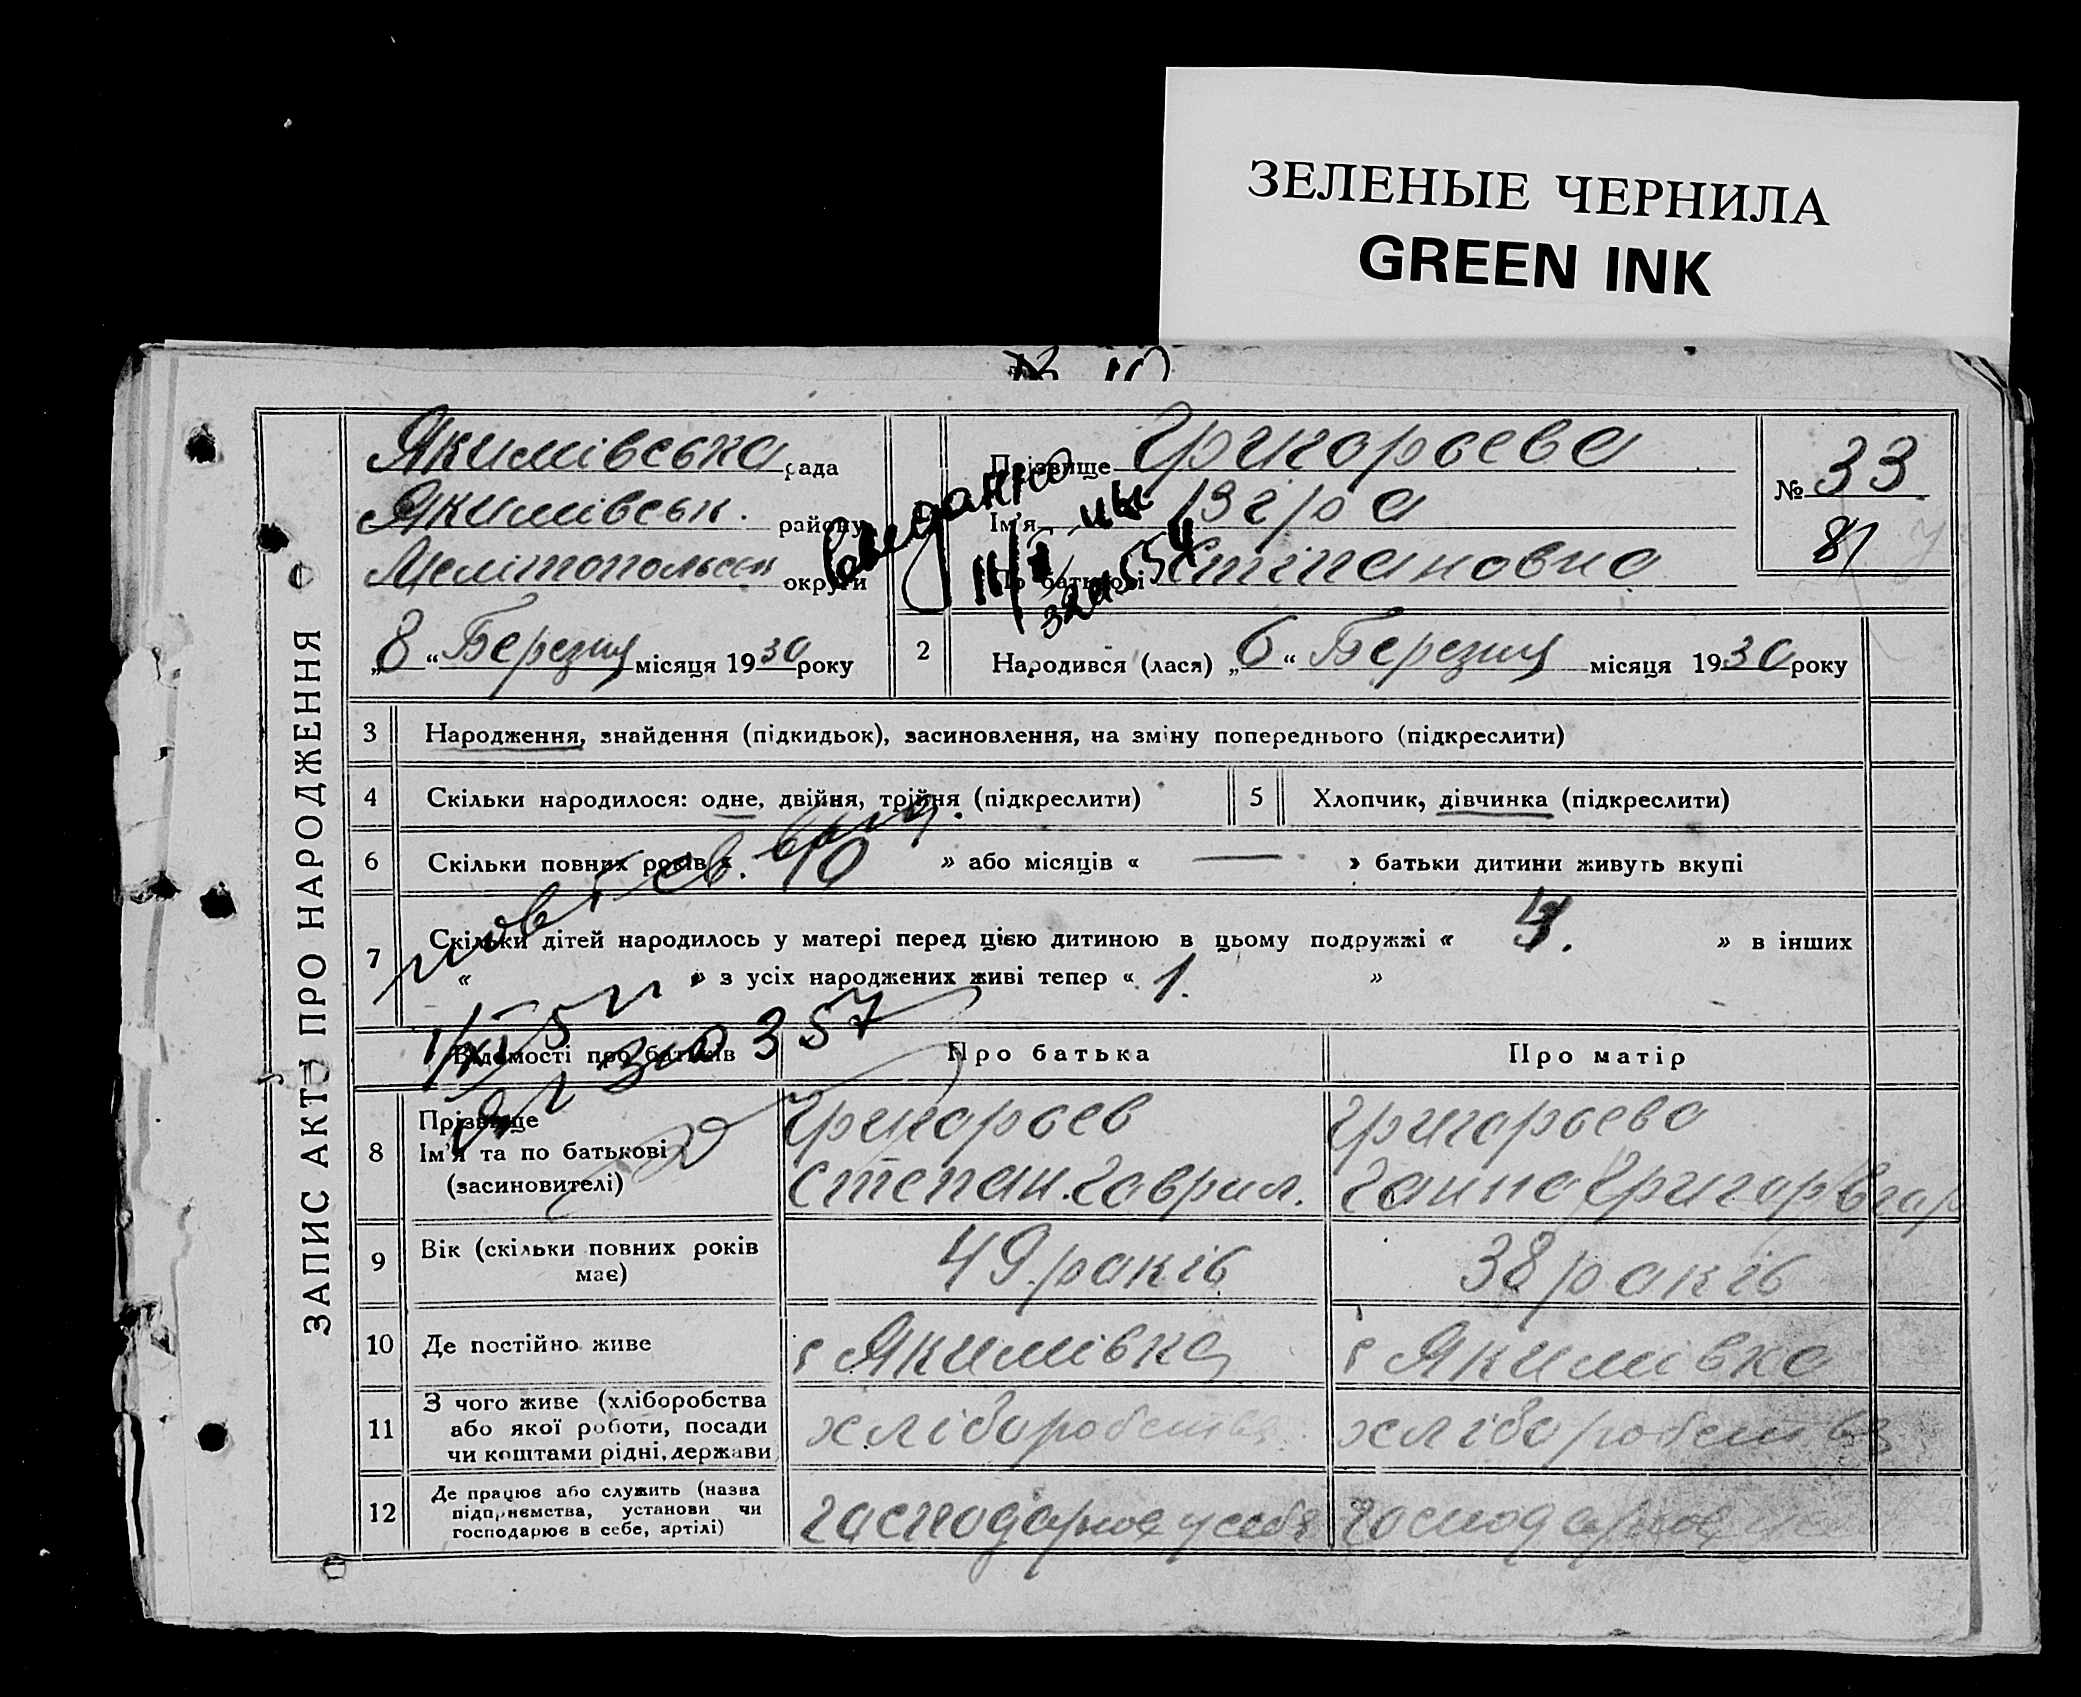 ЗЕЛЕНЫЕ ЧЕРНИЛА
GREEN INK
ЗАПИС АКТУ ПРО НАРОДЖЕННЯ
Якимівська рада
Якимівськ. району
округи
„8“ Березня місяця 1930 року
Прізвище Григорьева
Ім'я Віра
По батькові Стіпановна
№ 33
81
2 Народився (лася) „6“ Березня місяця 1930 року
3 Народження, знайдення (підкидьок), засиновлення, на зміну попереднього (підкреслити)
4 Скільки народилося: одне, двійня, трійня (підкреслити)
5 Хлопчик, дівчинка (підкреслити)
6 Скільки повних років « 10 » або місяців « — » батьки дитини живуть вкупі
7 Скільки дітей народилось у матері перед цією дитиною в цьому подружжі « » в інших
« » з усіх народжених живі тепер « 1. »
Відомості про батьків
Про батька
Про матір
8 Прізвище
Ім'я та по батькові
(засиновителі)
Григорьев
Степан. Гаврил.
Григорьева
Ганна Григор
9 Вік (скільки повних років
має)
49 років
38 років
10 Де постійно живе
с Якимівка
с Якимівка
11 З чого живе (хліборобства
або якої роботи, посади
чи коштами рідні, держави
хліборобства
хліборобства
12 Де працює або служить (назва
підприємства, установи чи
господарює в себе, артілі)
господарює у себе
господарює